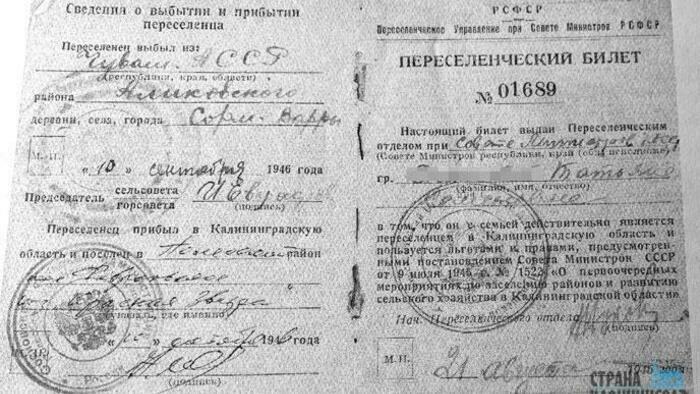 Сведения о выбытии и прибытии
переселенца
Переселенец выбыл из:
Чуваш. АССР
(республики, края, области)
района Аликовского
деревни, села, города Сорм-Вары
М. П.
"10" сентября 1946 года
Председатель сельсовета
горсовета
(подпись)
Переселенец прибыл в Калининградскую
область и поселен в район
(указать, где именно)
1946 года
(подпись)
РСФСР
Переселенческое Управление при Совете Министров РСФСР
ПЕРЕСЕЛЕНЧЕСКИЙ БИЛЕТ
№ 01689
Настоящий билет выдан Переселенческим
отделом при Совете Министров
(Совете Министров республики, край (обл) исполкоме)
гр. Татьяне
(фамилия, имя, отчество)
в том, что он с семьей действительно является
переселенцем в Калининградскую область и
пользуется льготами и правами, предусмотрен-
ными постановлением Совета Министров СССР
от 9 июля 1946 г. № 1522 «О первоочередных
мероприятиях по заселению районов и развитию
сельского хозяйства в Калининградской области»
Нач. Переселенческого отдела
(подпись)
М. П.
21 августа
СТРАНА
КАЛИНИНГРАД